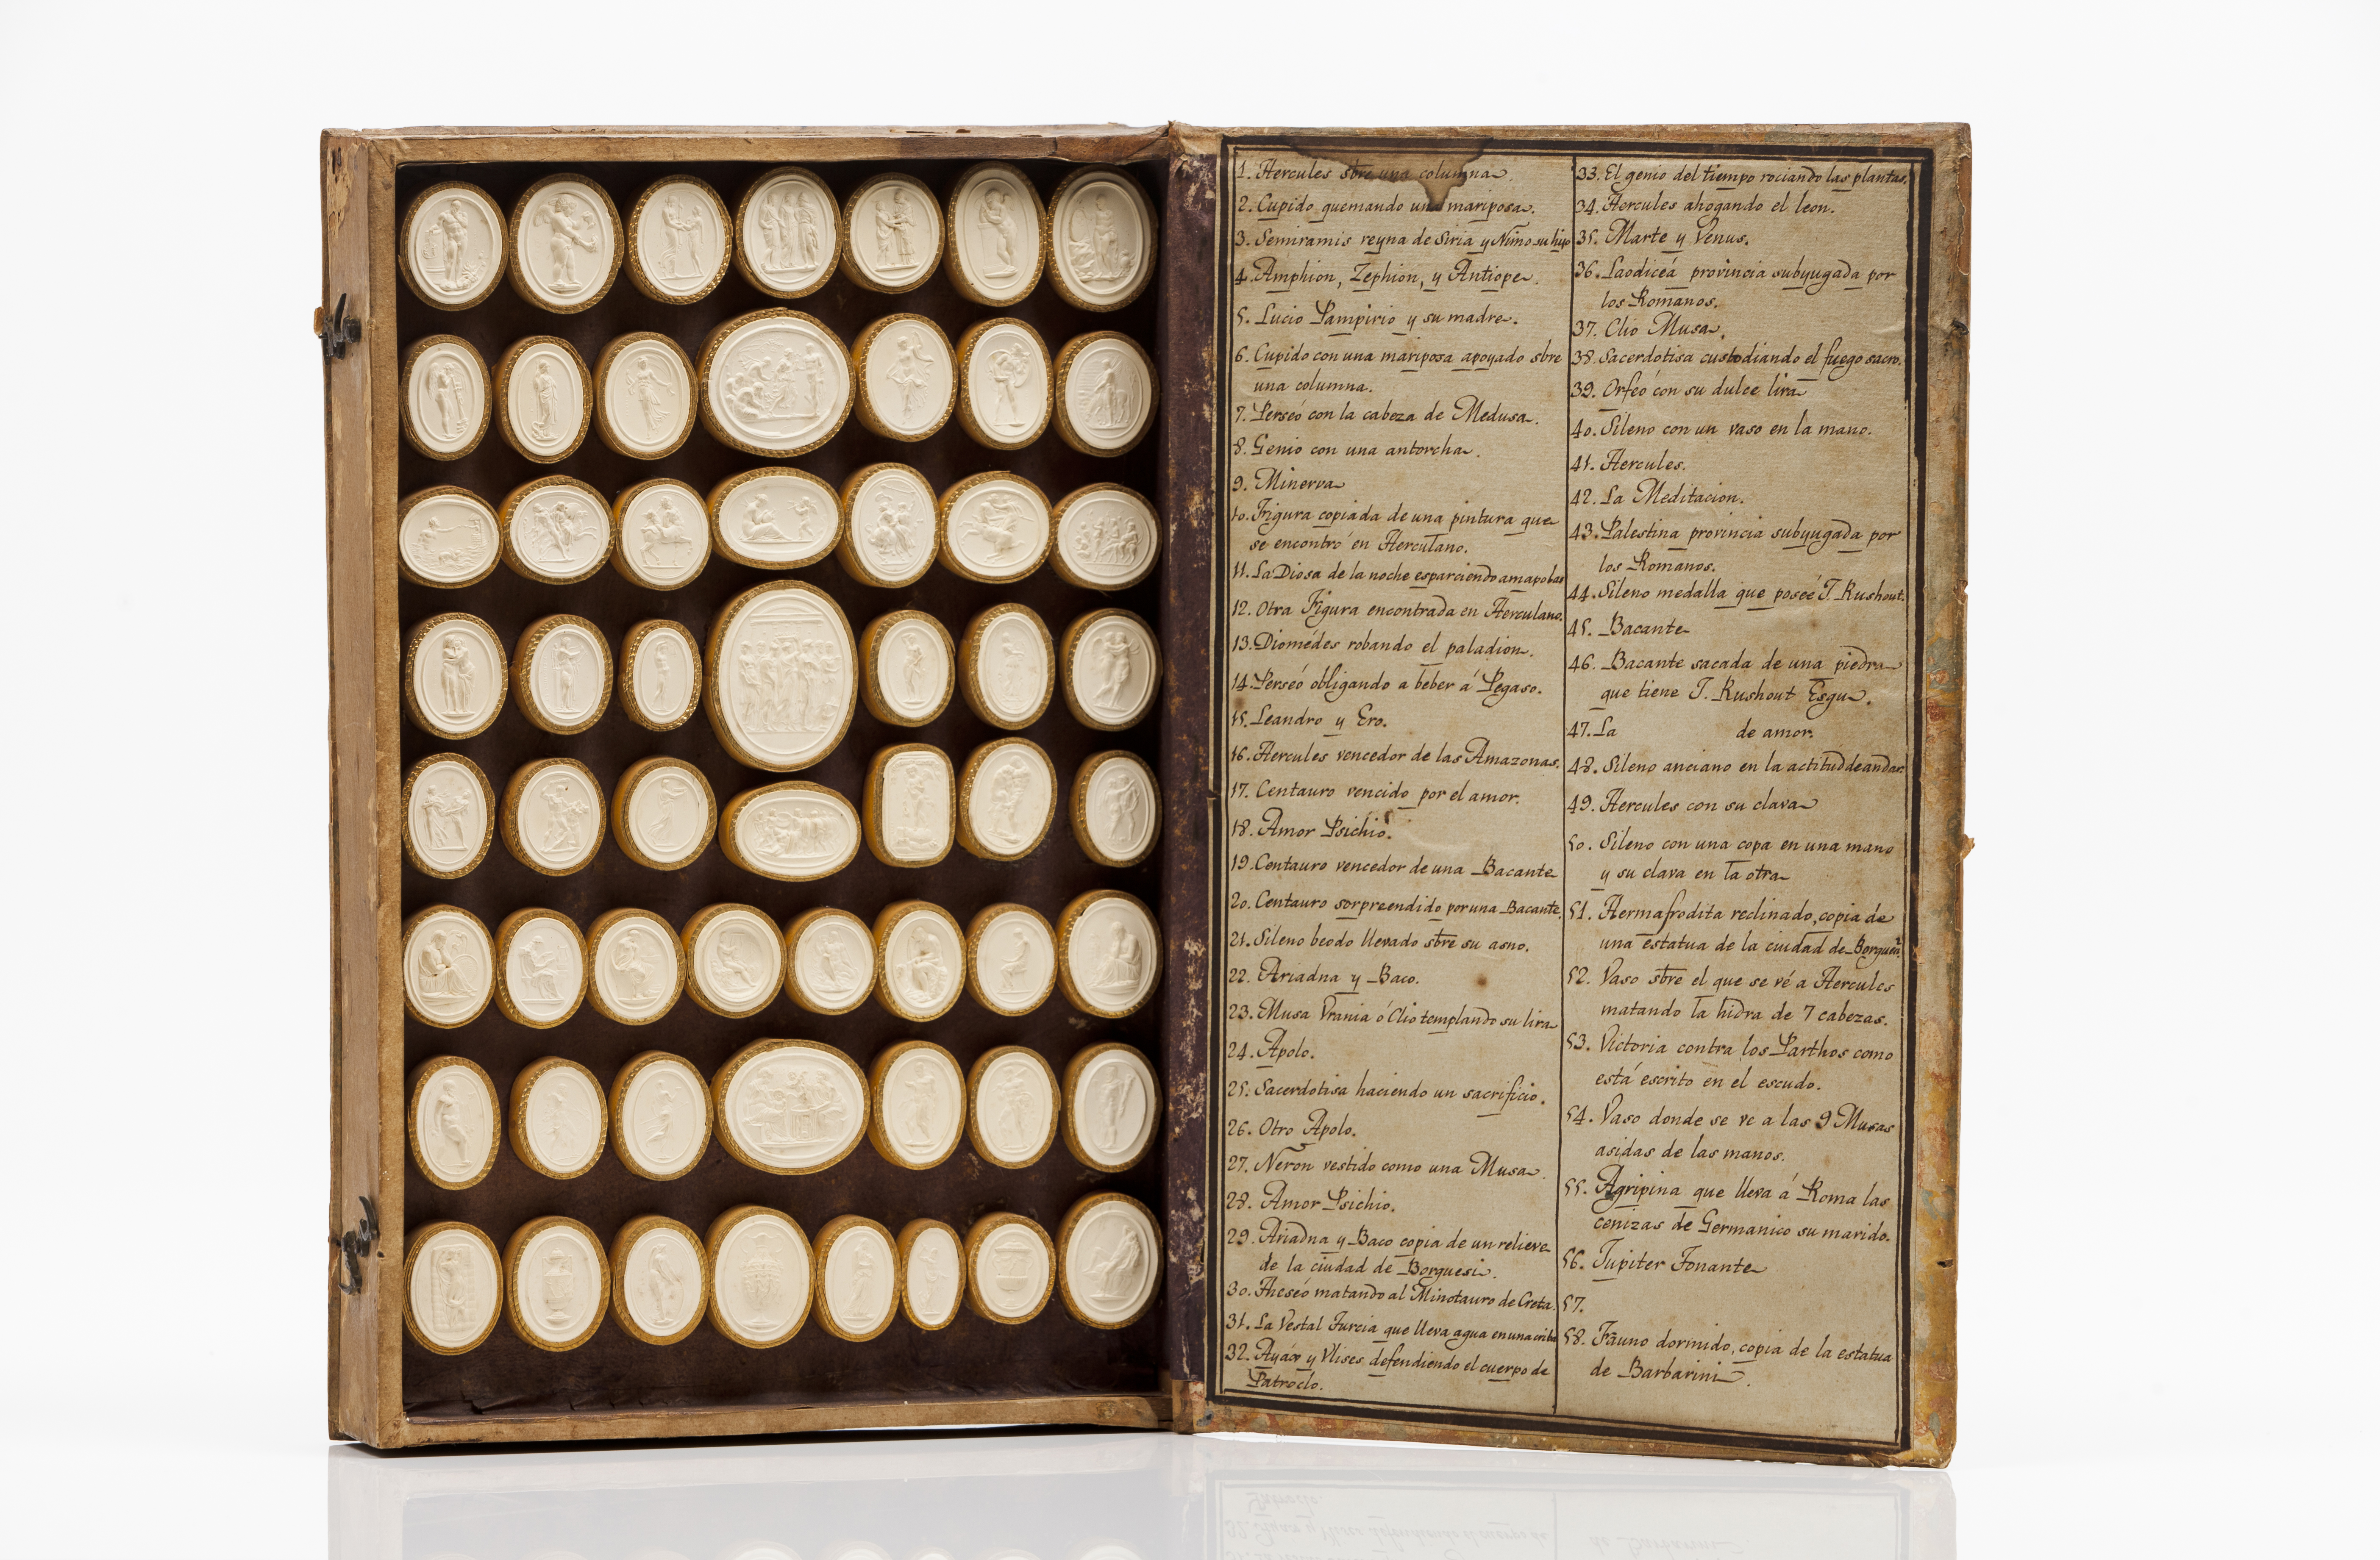 1. Hercules sbre una columna.
2. Cupido quemando una mariposa.
3. Semiramis reyna de Siria y Nino su hijo
4. Amphion, Zephion, y Antiope.
5. Lucio Pampirio y su madre.
6. Cupido con una mariposa apoyado sbre
una columna.
7. Perseó con la cabeza de Medusa.
8. Genio con una antorcha.
9. Minerva
10. Figura copiada de una pintura que
se encontró en Herculano.
11. La Diosa de la noche esparciendo amapolas
12. Otra Figura encontrada en Herculano.
13. Diomédes robando el paladion.
14. Perseó obligando a beber á Pegaso.
15. Leandro y Ero.
16. Hercules vencedor de las Amazonas.
17. Centauro vencido por el amor.
18. Amor Psichio.
19. Centauro vencedor de una Bacante
20. Centauro sorpreendido por una Bacante.
21. Sileno beodo llevado sbre su asno.
22. Ariadna y Baco.
23. Musa Vrania ó Clio templando su lira
24. Apolo.
25. Sacerdotisa haciendo un sacrificio.
26. Otro Apolo.
27. Neron vestido como una Musa.
28. Amor Psichio.
29. Ariadna y Baco copia de un relieve
de la ciudad de Borguesi.
30. Theseó matando al Minotauro de Creta.
31. La Vestal Turcia que lleva agua en una criba
32. Ayáx y Vlises defendiendo el cuerpo de
Patroclo.
33. El genio del tiempo rociando las plantas.
34. Hercules ahogando el leon.
35. Marte y Venus.
36. Laodiceá provincia subyugada por
los Romanos.
37. Clio Musa.
38. Sacerdotisa custodiando el fuego sacro.
39. Orfeó con su dulce lira
40. Sileno con un vaso en la mano.
41. Hercules.
42. La Meditacion.
43. Palestina provincia subyugada por
los Romanos.
44. Sileno medalla que posée J. Rushout.
45. Bacante
46. Bacante sacada de una piedra
que tiene J. Rushout Esqu.
47. La de amor.
48. Sileno anciano en la actitud de andar.
49. Hercules con su clava
50. Sileno con una copa en una mano
y su clava en la otra
51. Hermafrodita reclinado, copia de
una estatua de la ciudad de
52. Vaso sbre el que se vé a Hercules
matando la hidra de 7 cabezas.
53. Victoria contra los Parthos como
está escrito en el escudo.
54. Vaso donde se ve a las 9 Musas
asidas de las manos.
55. Agripina que lleva á Roma las
cenizas de Germanico su marido.
56. Jupiter Tonante
57.
58. Fauno dormido, copia de la estatua
de Barbarini.